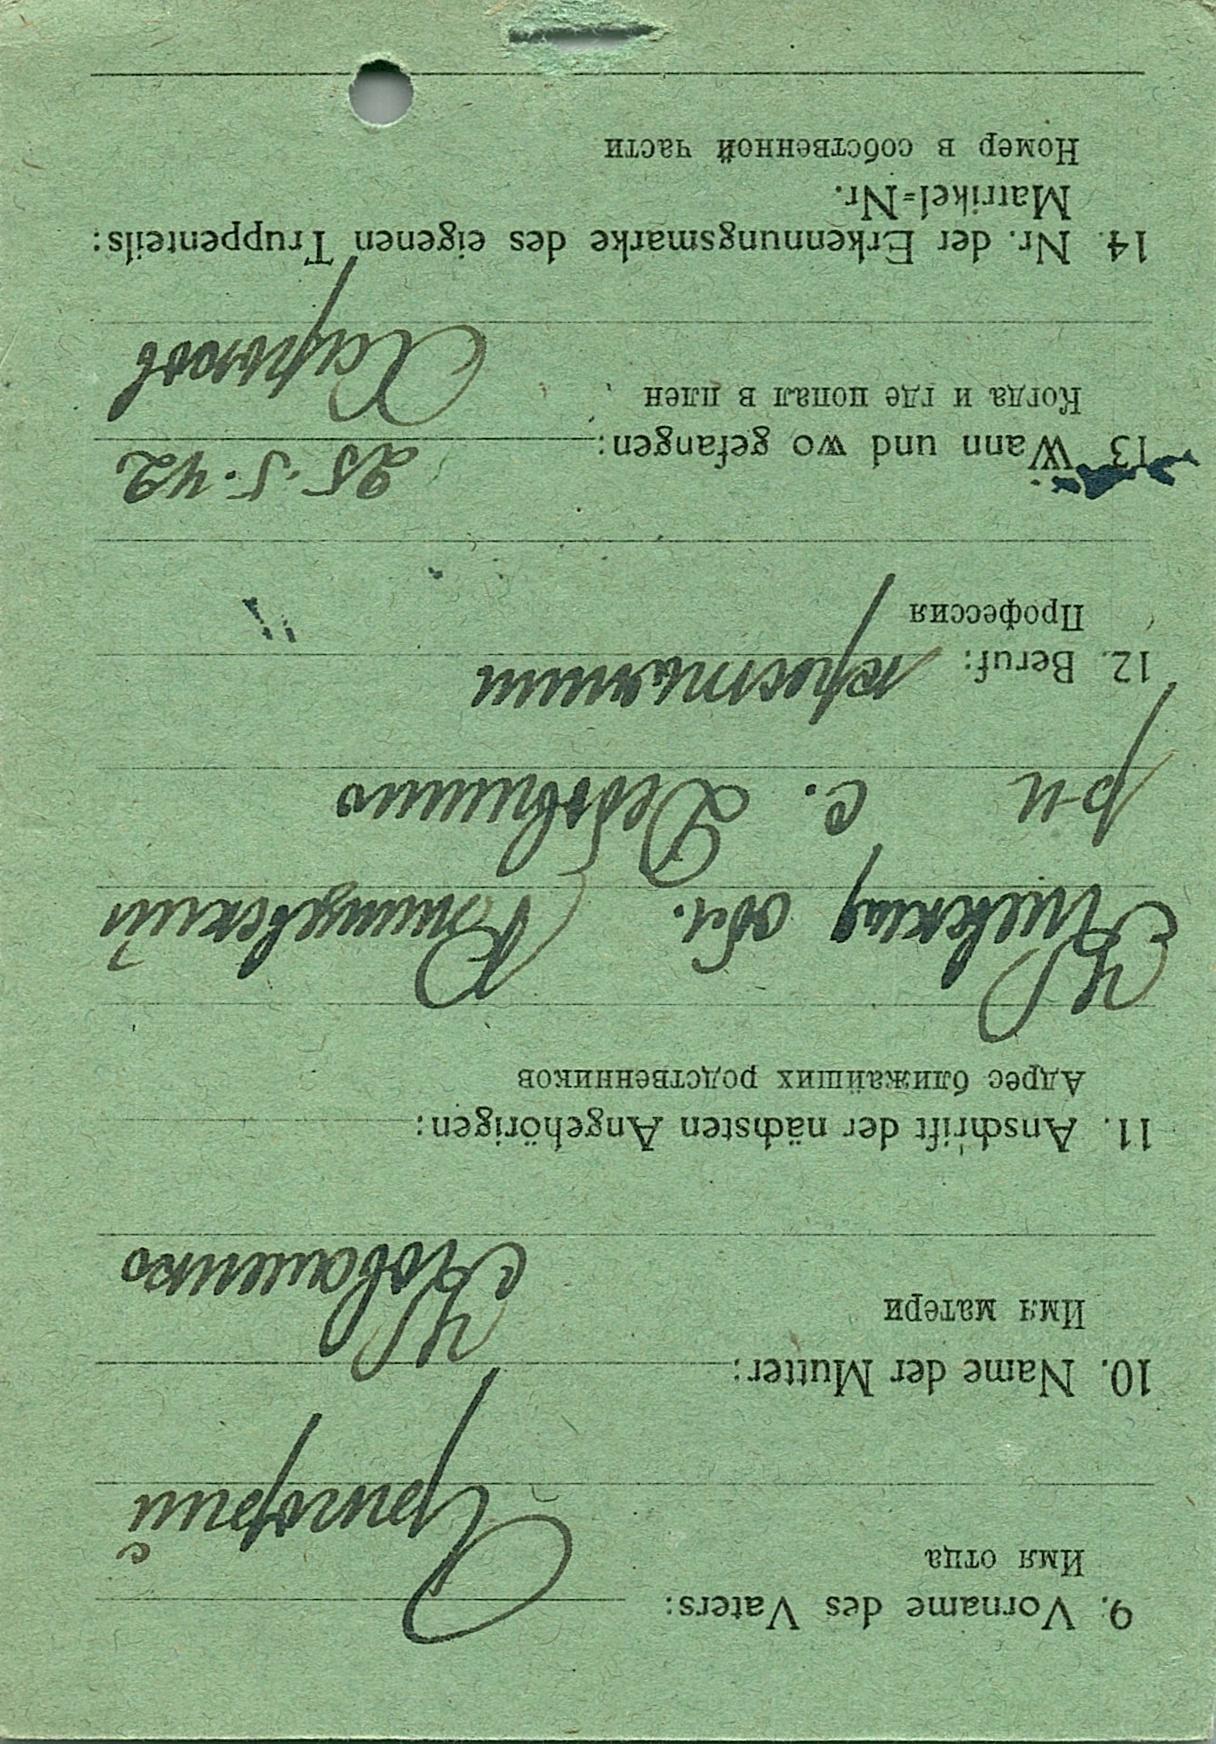 9. Vorname des Vaters:
Имя отца
Григорий
10. Name der Mutter:
Имя матери
Коваленко
11. Anschrift der nächsten Angehörigen:
Адрес ближайших родственников
Киевская обл.
р-н с.
12. Beruf:
Профессия
13 Wann und wo gefangen: 25.5.42
Когда и где попал в плен
Харьков
14. Nr. der Erkennungsmarke des eigenen Truppenteils:
Matrikel=Nr.
Номер в собственной части